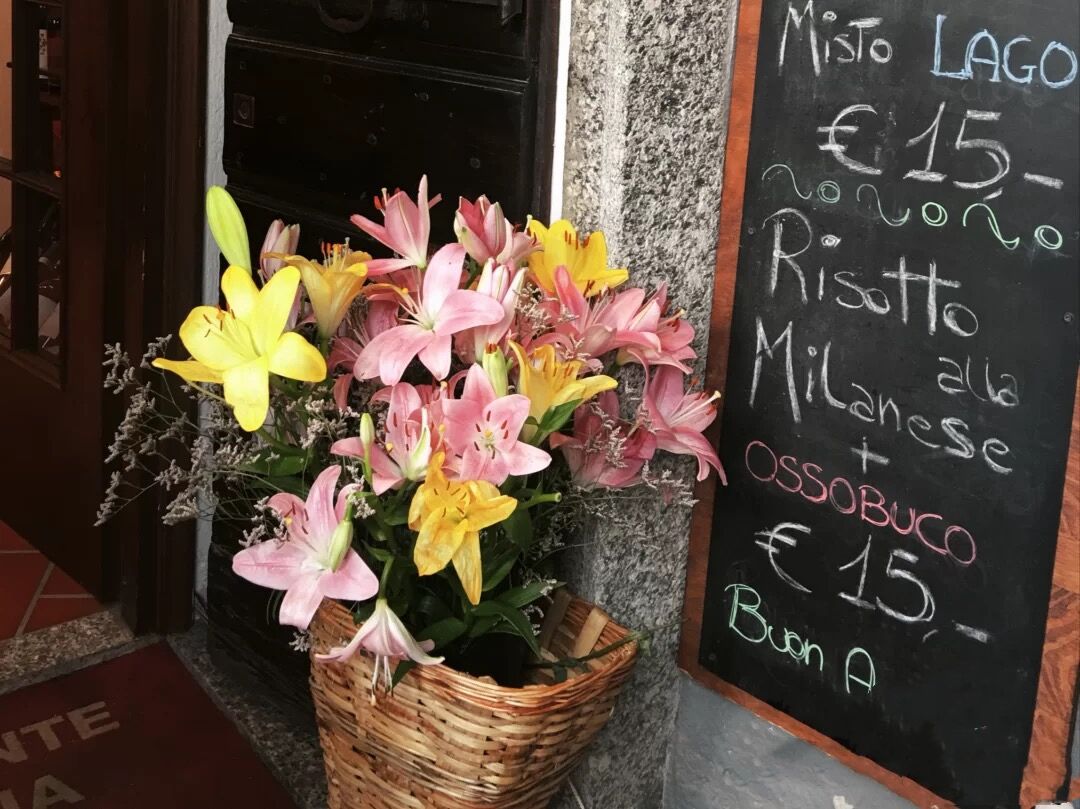 Misto LAGO
€ 15,-
Risotto
alla
Milanese
+
OSSOBUCO
€ 15,-
Buon A
NTE
IA